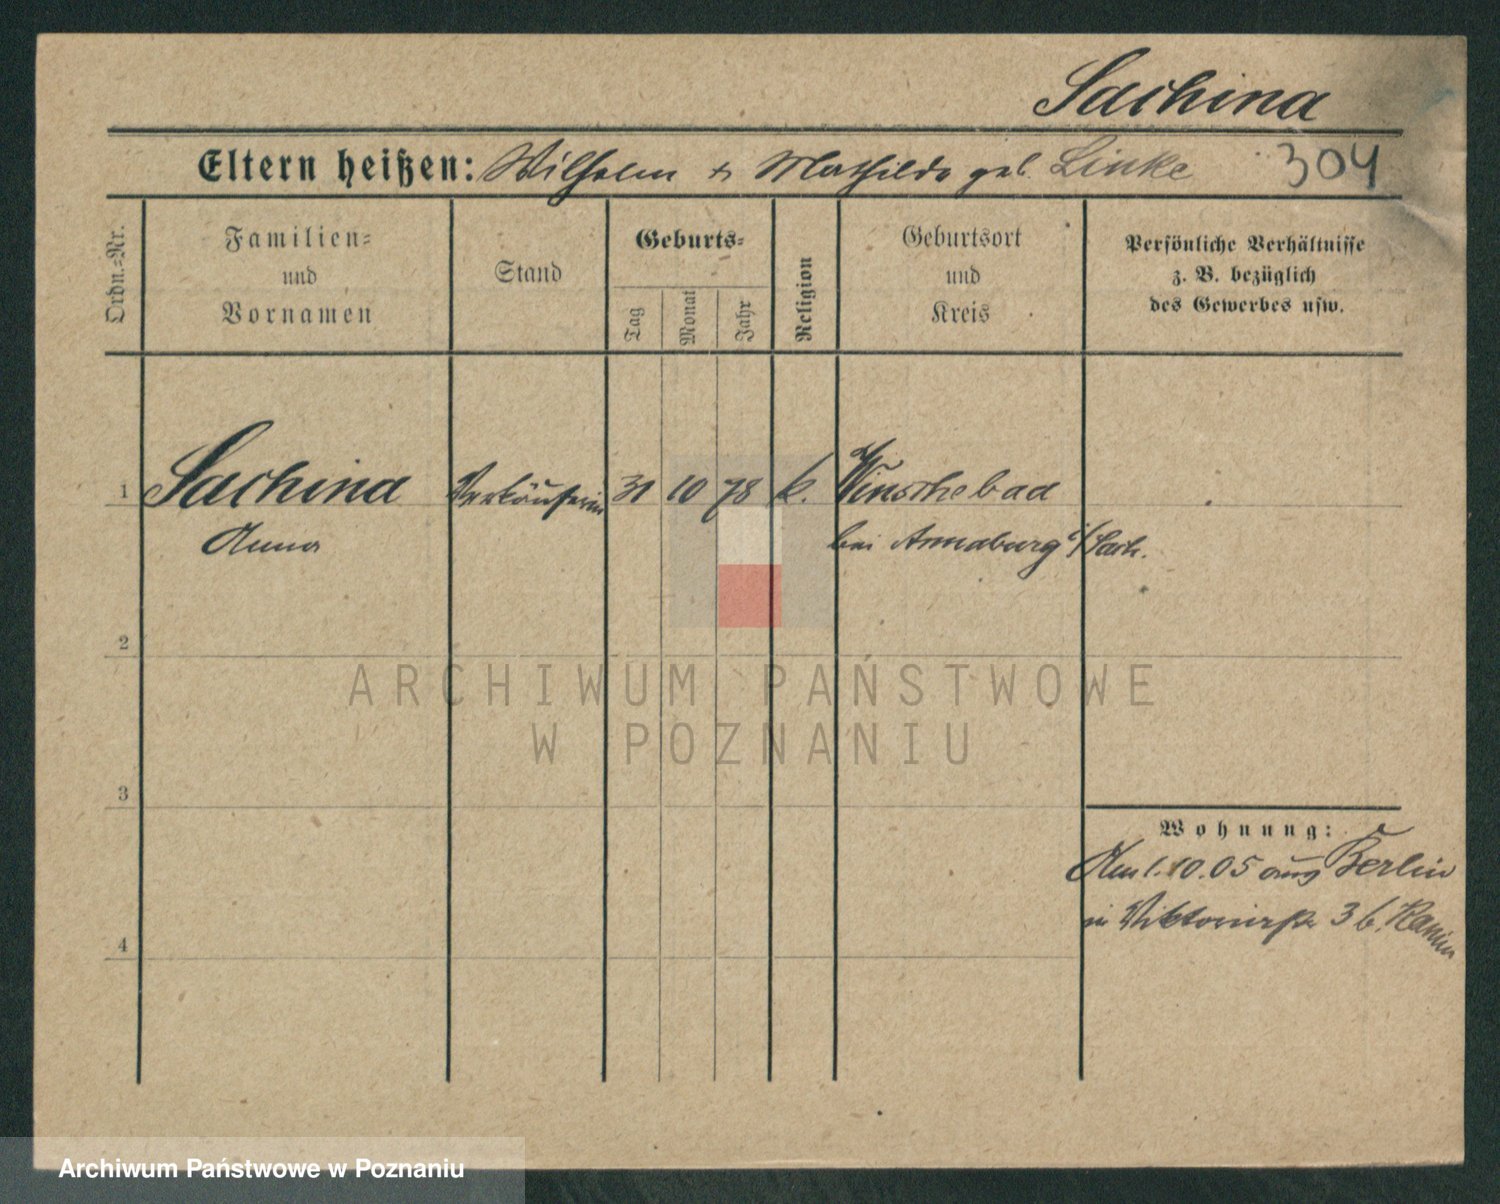 Sachina
Eltern heißen: Wilhelm & Mathilde geb. Linke 304
Ordn.-Nr.
Familien-
und
Vornamen
Stand
Geburts-
Tag
Monat
Jahr
Religion
Geburtsort
und
Kreis
Persönliche Verhältnisse
z. B. bezüglich
des Gewerbes usw.
1 Sachina Verkäuferin 31 10 78 k. Winschebad
Anna bei Annaburg i/Sach.
2
ARCHIWUM PAŃSTWOWE
W POZNANIU
3
Wohnung:
Am 1.10.05 aus Berlin
in Viktoriastr 36.
4
Archiwum Państwowe w Poznaniu